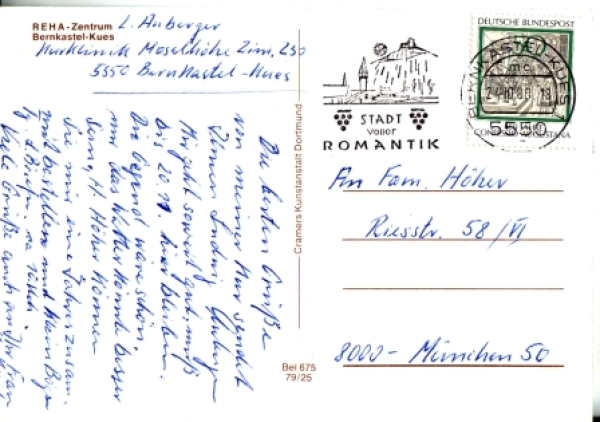 REHA-Zentrum
Bernkastel-Kues
L. Auberger
Kurklinik Moselhöhe Zim. 250
5550 Bernkastel-Kues
Die besten Grüße
von meiner Kur sendet
Ihnen Ludwig Auberger
Mir geht soweit gut, muß
bis 20.11. hier bleiben.
Die Gegend wäre schön,
nur das Wetter könnte besser
sein, H. Höher können
Sie mir eine Jahreszusam.
mit bestellen und
Viele Grüße auch an Ihre Frau
Cramers Kunstanstalt Dortmund
Bel 675
79/25
STADT
voller
ROMANTIK
DEUTSCHE BUNDESPOST
BERNKASTEL-KUES
mc
5550
CONFESSIO AUGUSTANA
An Fam. Höher
Riesstr. 58/VI
8000 - München 50